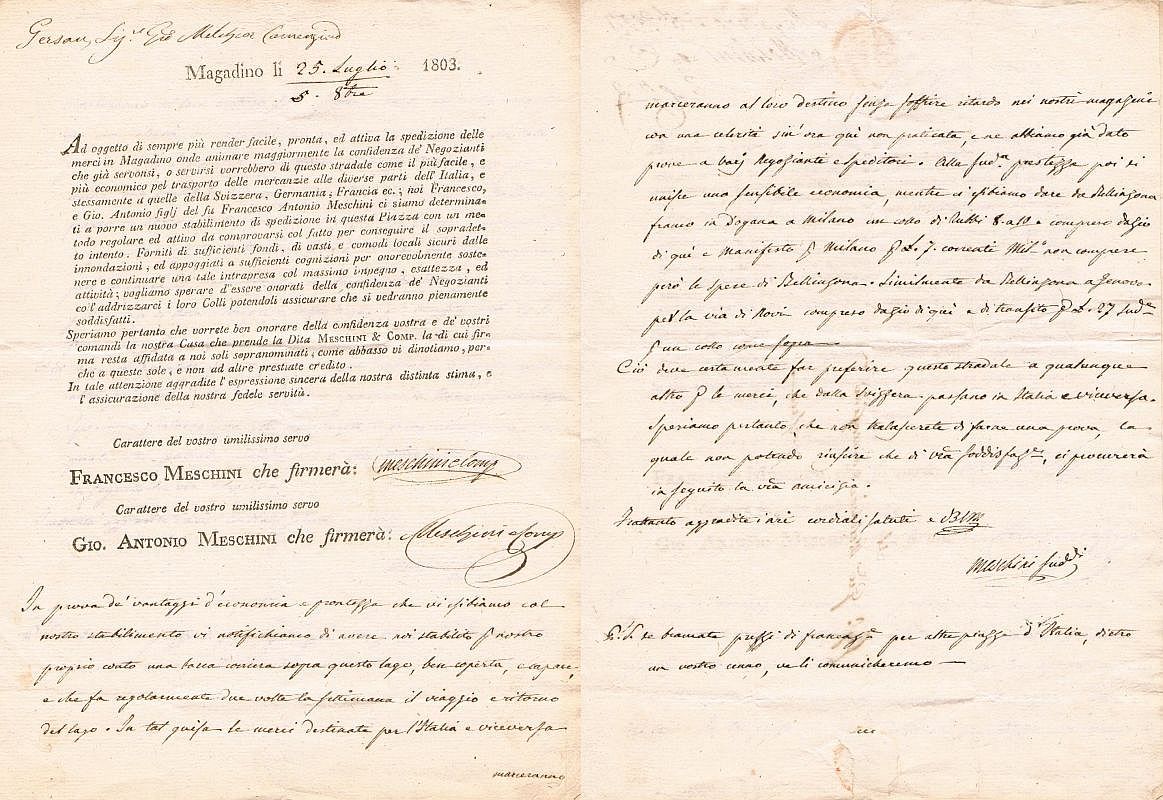 Gersau, Sig.r Gio Melchior Camenzind
Magadino li 25. Luglio. 1803.
5. 8bre
Ad oggetto di sempre più render facile, pronta, ed attiva la spedizione delle
merci in Magadino onde animare maggiormente la confidenza de' Negozianti
che già servonsi, o servirsi vorrebbero di questo stradale come il più facile, e
più economico pel trasporto delle mercanzie alle diverse parti dell'Italia, e
stessamente a quelle della Svizzera, Germania, Francia ec.; noi Francesco,
e Gio. Antonio figlj del fu Francesco Antonio Meschini ci siamo determina-
ti a porre un nuovo stabilimento di spedizione in questa Piazza con un me-
todo regolare ed attivo da comprovarsi col fatto per conseguire il sopradet-
to intento. Forniti di sufficienti fondi, di vasti e comodi locali sicuri dalle
innondazioni, ed appoggiati a sufficienti cognizioni per onorevolmente soste-
nere e continuare una tale intrapresa col massimo impegno, esattezza, ed
attività; vogliamo sperare d'essere onorati della confidenza de' Negozianti
co'l'addrizzarci i loro Colli potendoli assicurare che si vedranno pienamente
soddisfatti.
Speriamo pertanto che vorrete ben onorare della confidenza vostra e de' vostri
comandi la nostra Casa che prende la Dita MESCHINI & COMP. la di cui fir-
ma resta affidata a noi soli sopranominati, come abbasso vi dinotiamo, per-
che a queste sole, e non ad altre prestiate credito.
In tale attenzione aggradite l'espressione sincera della nostra distinta stima, e
l'assicurazione della nostra fedele servitù.
Carattere del vostro umilissimo servo
FRANCESCO MESCHINI che firmerà: Meschini e Comp
Carattere del vostro umilissimo servo
GIO. ANTONIO MESCHINI che firmerà: Meschini e Comp
In prova de' vantaggi d'economia e prontezza che vi esibiamo col
nostro stabilimento vi notifichiamo di avere noi stabilito p nostro
proprio conto una barca coriera sopra questo lago, ben coperta, e capace,
e che fa regolarmente due volte la settimana il viaggio e ritorno
del lago. In tal guisa le merci destinate per l'Italia e viceversa
marceranno
marceranno al loro destino senza soffrire ritardo nei nostri magazeni
con una celerità sin'ora quì non praticata, e ne abbiamo già dato
prove a varj Negozianti e speditori. Alla sud.a prestezza poi si
unisce una sensibile economia, mentre ci esibiamo dare da Bellinzona
franco in Dogana a Milano un collo di Rubbi 8. a 10. compreso dazio
di quì e manifesto p Milano p L. 7. correnti Mil.o non comprese
però le spese di Bellinzona. Similmente da Bellinzona a Genova
per la via di Novi compreso dazio di quì e di transito p L. 27 sud.e
p un collo come sopra
Ciò deve certamente far preferire questo stradale a qualunque
altro p le merci, che dalla Svizzera passano in Italia e viceversa.
Speriamo pertanto, che non tralascerete di farne una prova, la
quale non potendo riuscire che di v.ra soddisfaz.e, ci procurerà
in seguito la v.ra amicizia.
Frattanto aggradite i nri cordiali saluti e BLM
Meschini sudd.i
P.S. se bramate prezzi di francaz.e per altre piazze d'Italia, dietro
un vostro cenno, ve li comunicheremo